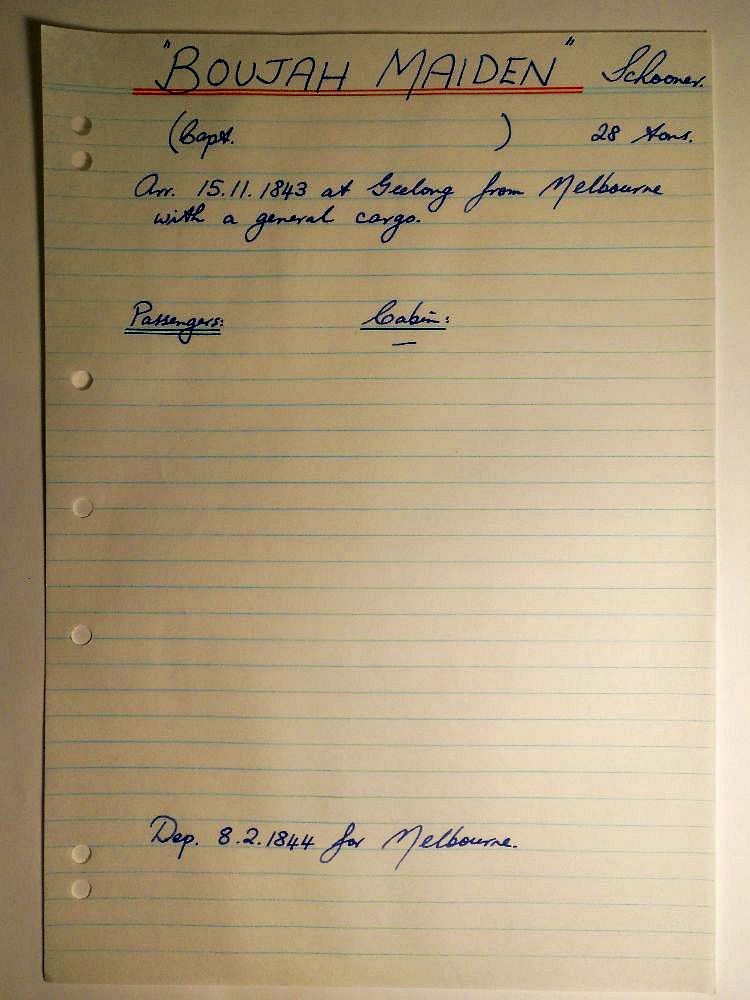 "BOUJAH MAIDEN" Schooner.
(Capt. ) 28 tons.
Arr. 15.11.1843 at Geelong from Melbourne
with a general cargo.
Passengers: Cabin:
—
Dep. 8.2.1844 for Melbourne.